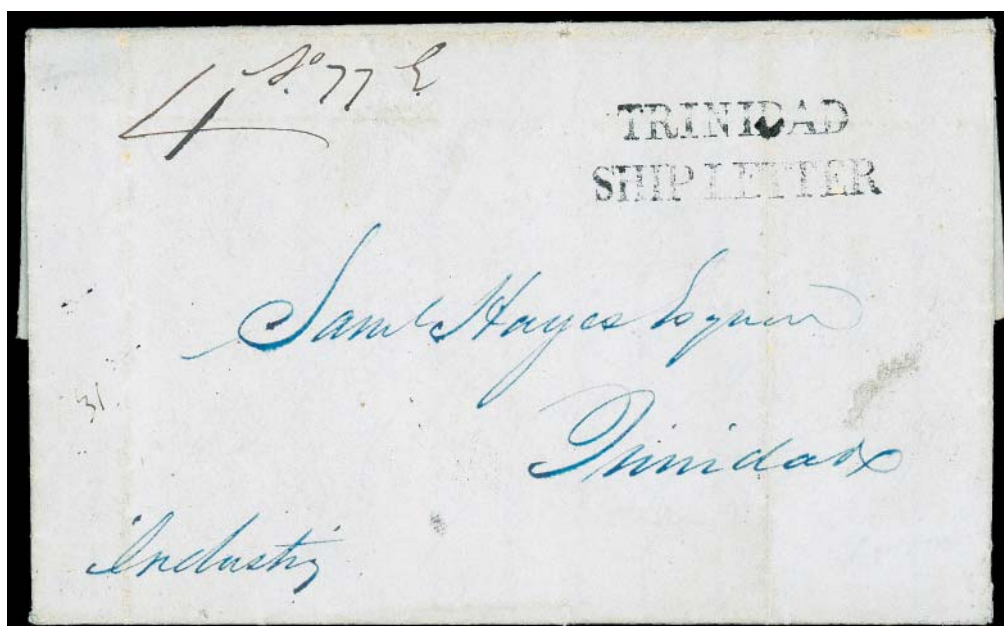 4 No. 77 E
TRINIDAD
SHIP LETTER
Saml Hayes Esquire
31
Trinidad
Industry